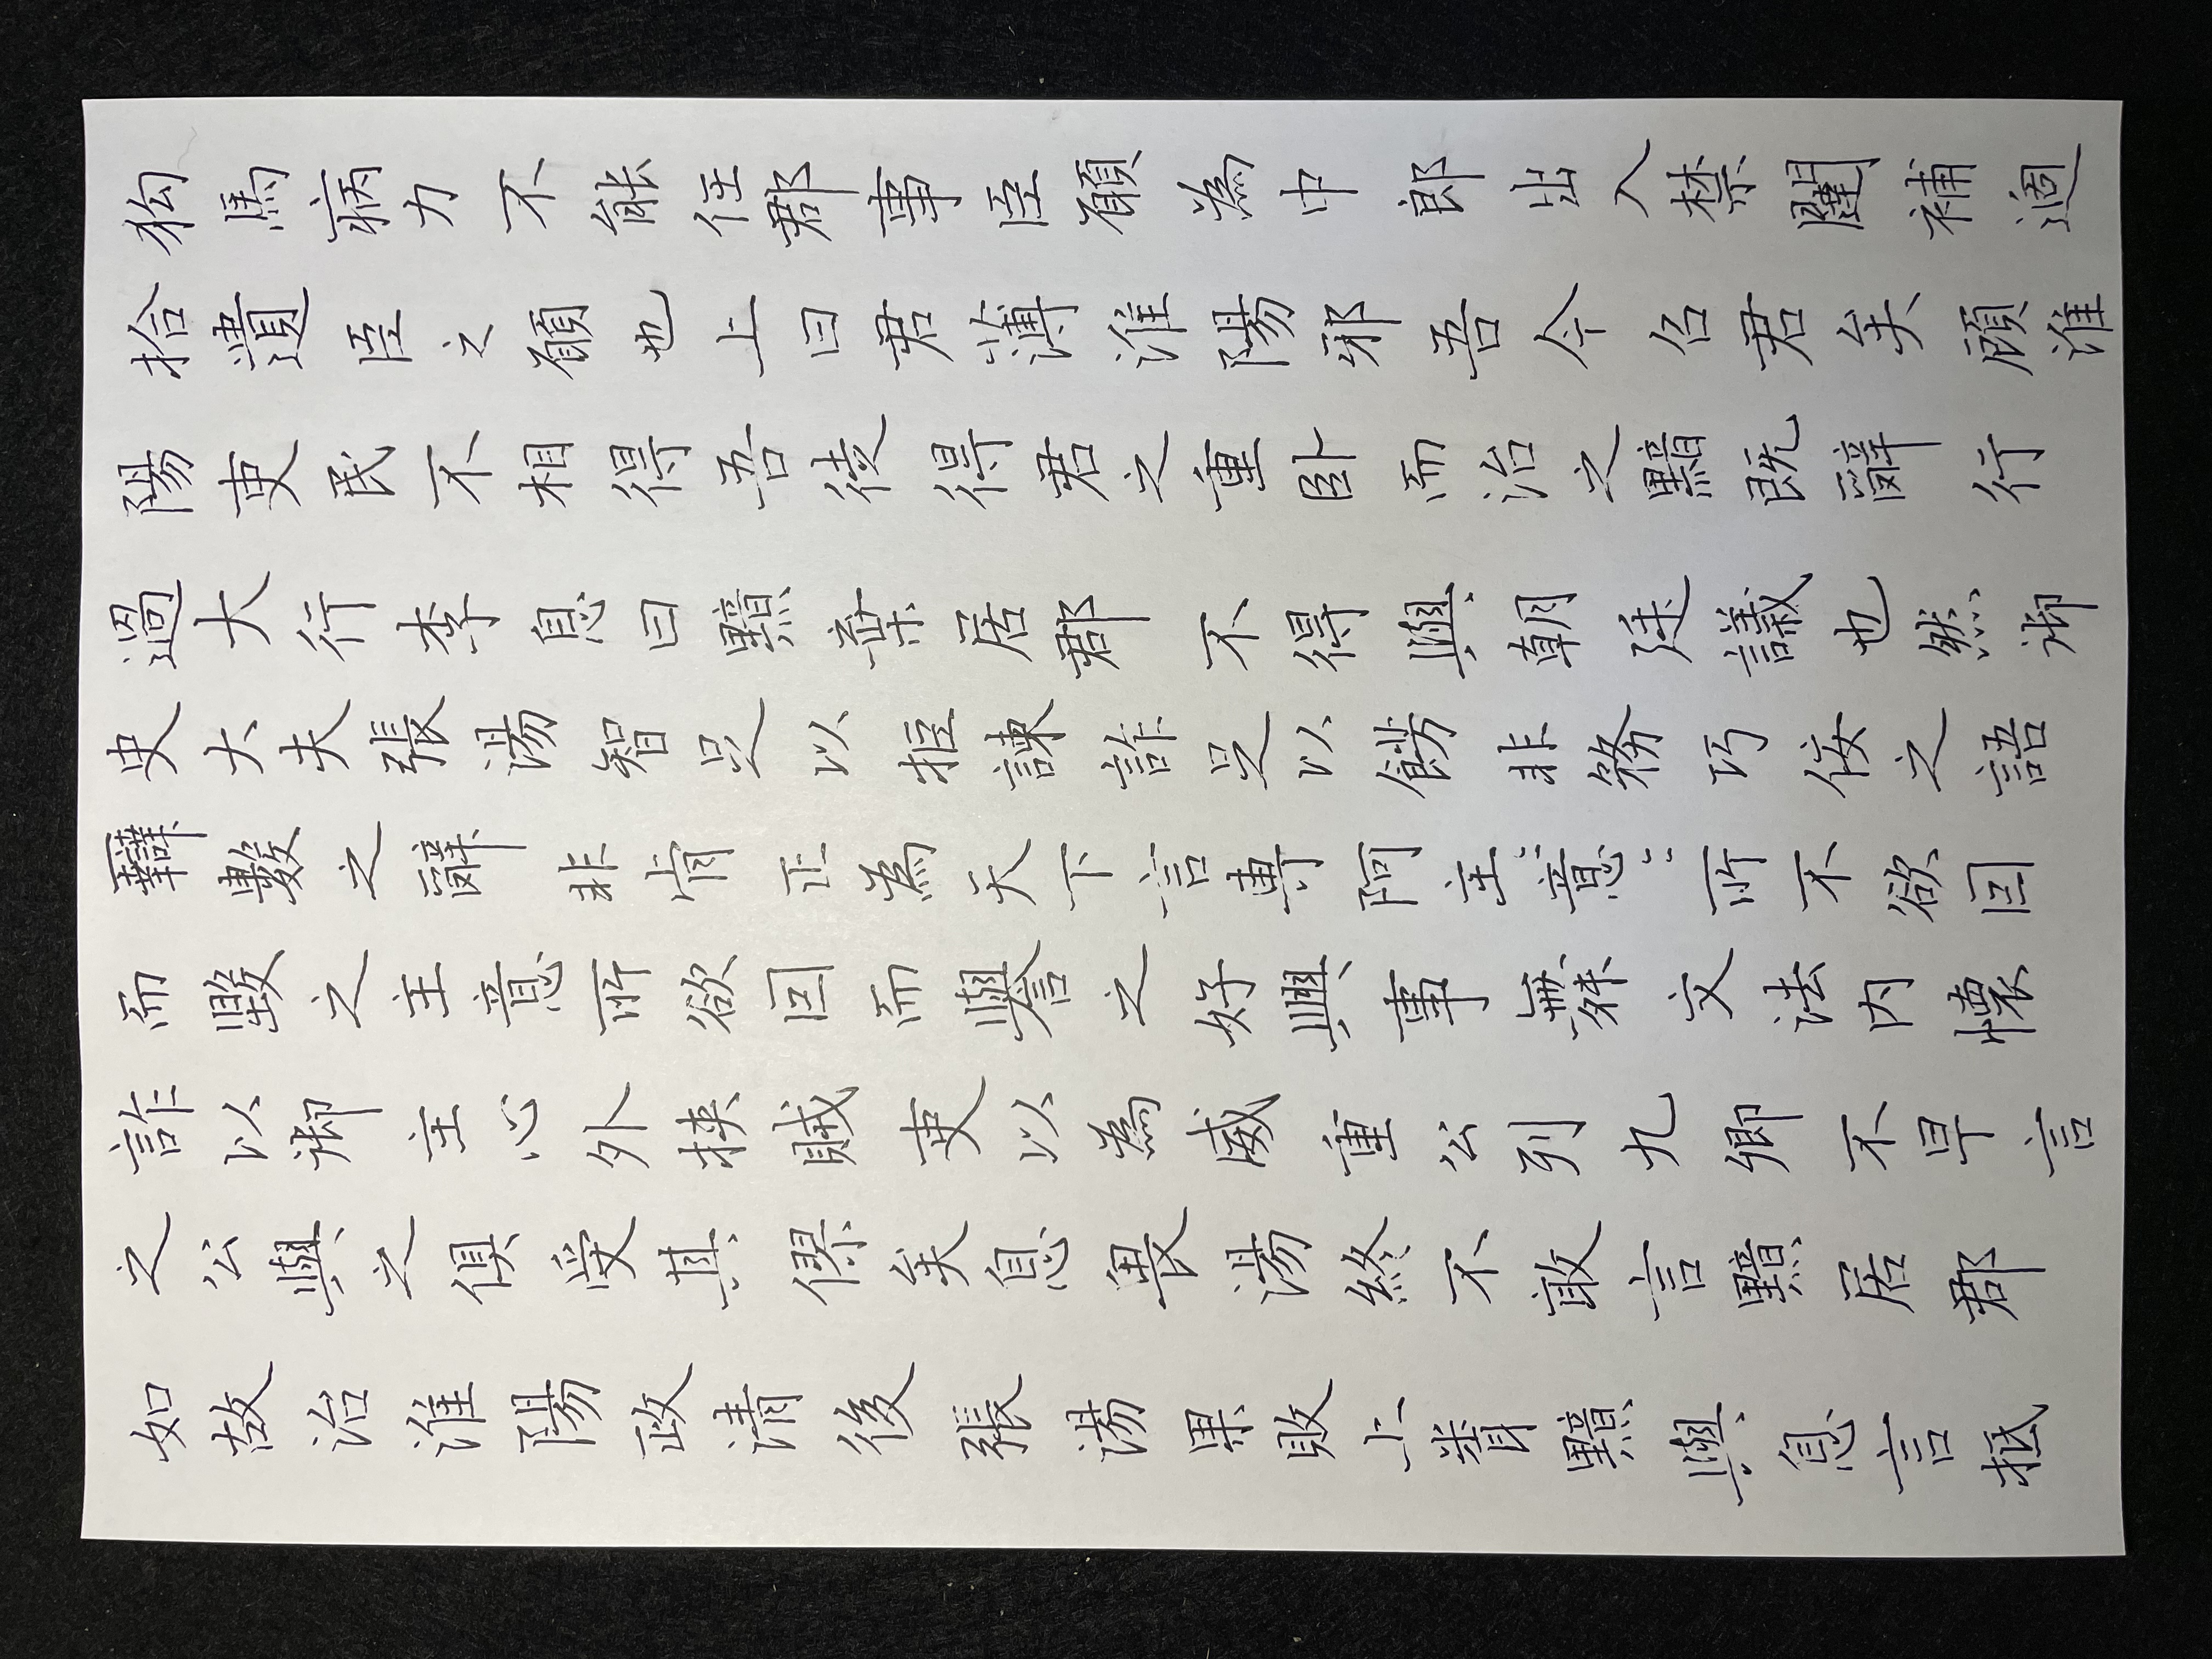 狗馬病力不能任郡事臣願為中郎出入禁闥補過
拾遺臣之願也上曰君薄淮陽邪吾今召君矣顧淮
陽吏民不相得吾徒得君之重卧而治之黯既辭行
過大行李息曰黯棄居郡不得與朝廷議也然御
史大夫張湯智足以拒諫詐足以餝非務巧佞之語
辯數之辭非肯正為天下言專阿主〻意〻所不欲因
而毀之主意所欲因而譽之好興事舞文法內懷
詐以御主心外挾賊吏以為威重公列九卿不早言
之公與之俱受其僇矣息畏湯終不敢言黯居郡
如故治淮陽政清後張湯果敗上聞黯與息言抵